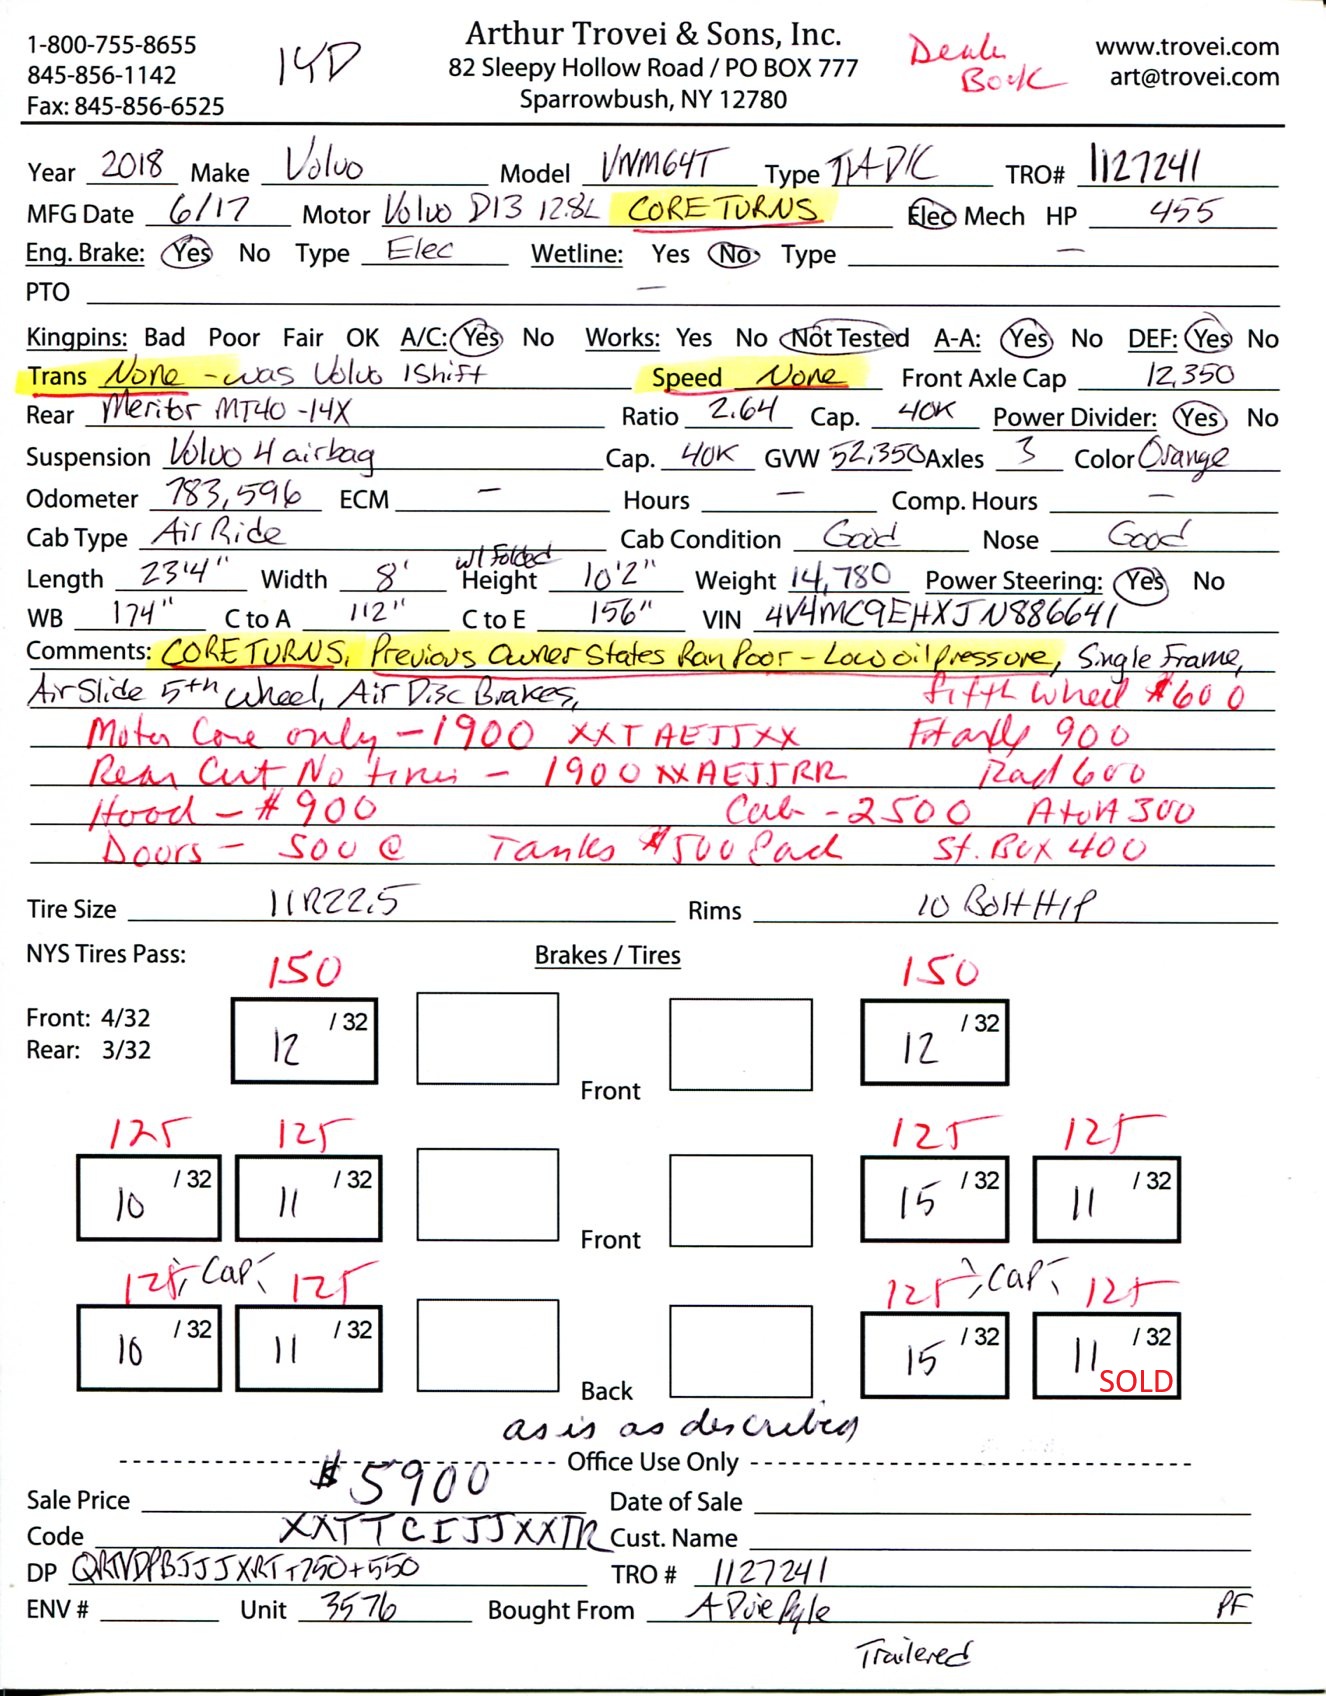 1-800-755-8655
845-856-1142
Fax: 845-856-6525
14D
Arthur Trovei & Sons, Inc.
82 Sleepy Hollow Road / PO BOX 777
Sparrowbush, NY 12780
Book
www.trovei.com
art@trovei.com
Year 2018 Make Volvo Model VNM64T Type TRADIC TRO# 1127241
MFG Date 6/17 Motor Volvo D13 12.8L CORE TURNS Elec Mech HP 455
Eng. Brake: Yes No Type Elec Wetline: Yes No Type —
PTO —
Kingpins: Bad Poor Fair OK A/C: Yes No Works: Yes No Not Tested A-A: Yes No DEF: Yes No
Trans None - was Volvo IShift Speed None Front Axle Cap 12,350
Rear Meritor MT40-14X Ratio 2.64 Cap. 40K Power Divider: Yes No
Suspension Volvo 4 airbag Cap. 40K GVW 52,350 Axles 3 Color Orange
Odometer 783,596 ECM — Hours — Comp. Hours —
Cab Type Air Ride Cab Condition Good Nose Good
Length 23'4" Width 8' w/ Folded Height 10'2" Weight 14,780 Power Steering: Yes No
WB 174" C to A 112" C to E 156" VIN 4V4MC9EHXJN886641
Comments: CORE TURNS, Previous Owner States Ran Poor - Low oil pressure, Single Frame,
Air Slide 5th Wheel, Air Disc Brakes, fifth Wheel $600
Motor Core only - 1900 XXTAEJJXX 900
Rear Cut No tires - 1900 XXAEJJRR Rad 600
Hood - #900 Cab - 2500 AtoA 300
Doors - 500 @ Tanks $500 Each St. Box 400
Tire Size 11R22.5 Rims 10 Bolt H/P
NYS Tires Pass: Brakes / Tires
150 150
Front: 4/32
Rear: 3/32
12 /32 12 /32
Front
125 125 125 125
10 /32 11 /32 15 /32 11 /32
Front
125 Cap 125 125 Cap 125
10 /32 11 /32 15 /32 11 /32
SOLD
Back
as is as described
Office Use Only
Sale Price $5900 Date of Sale
Code XXTTCIJJXXTR Cust. Name
DP QRTVDPBJJJXRT+250+550 TRO # 1127241
ENV # Unit 3576 Bought From A Duie Pyle PF
Trailered